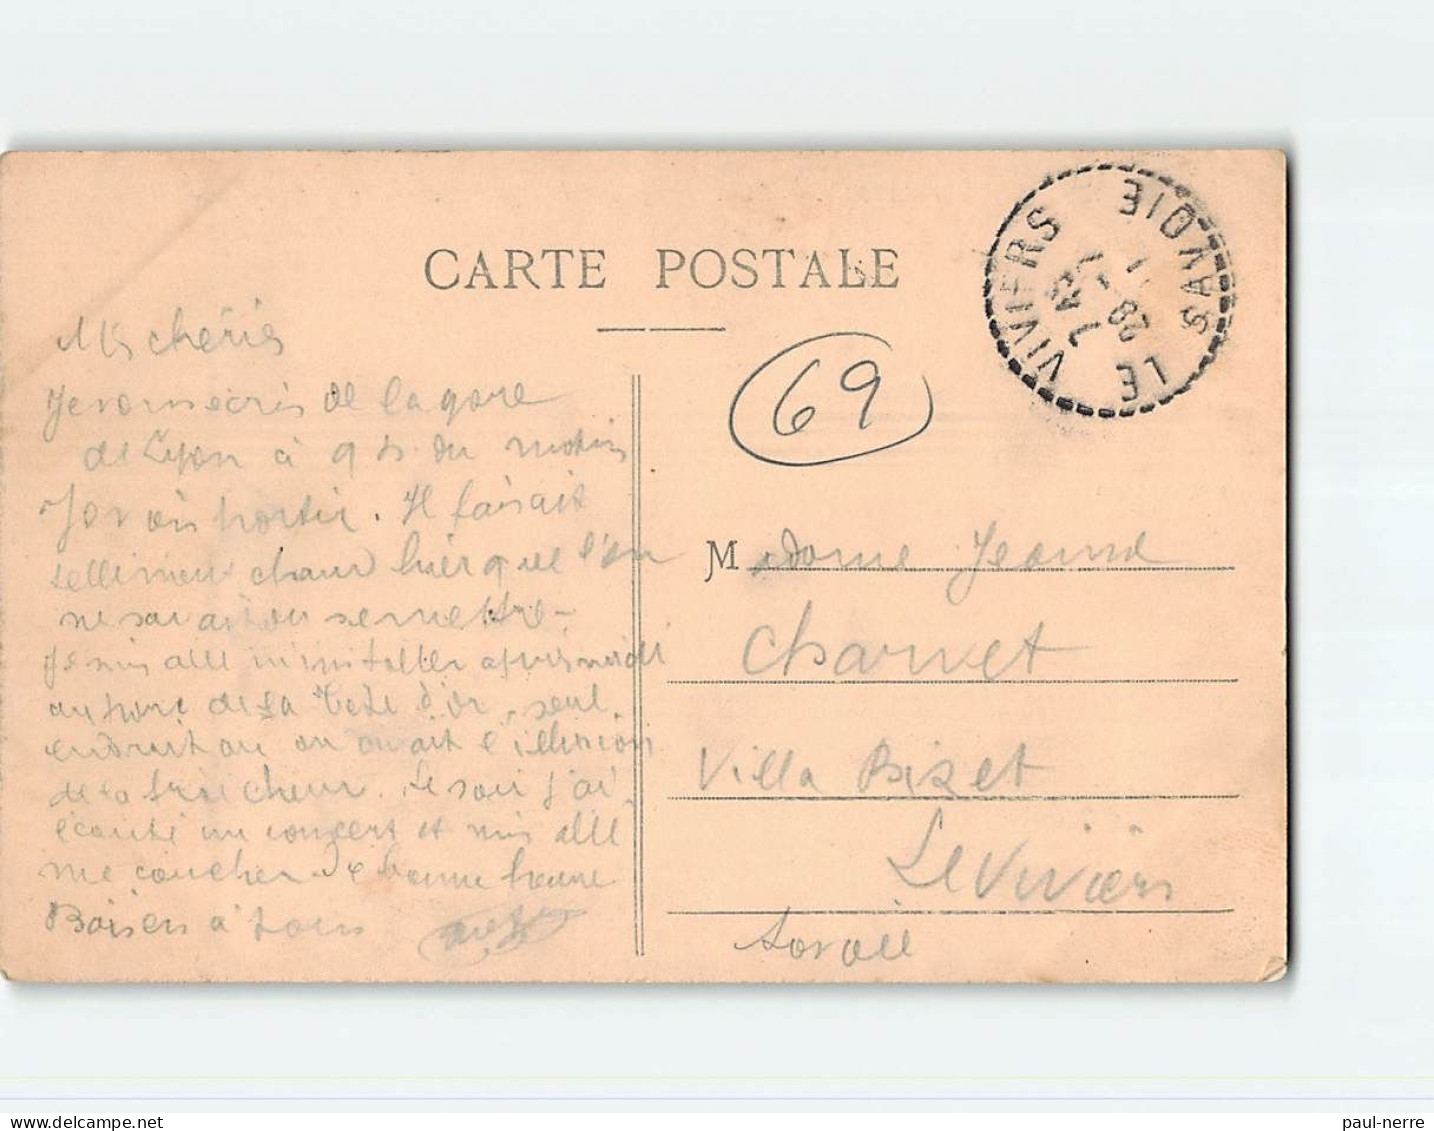 CARTE POSTALE
LE VIVIERS SAVOIE
28
69
Mes chéries
Je vous écris de la gare
de Lyon à 9 h. du matin
Il faisait
tellement chaud hier que l'on
ne savait où se mettre -
Je suis allé m'installer après midi
au parc de la Tête d'or, seul
endroit où on avait l'illusion
de la fraîcheur. Le soir j'ai
écouté un concert et suis allé
me coucher de bonne heure
Baisers à tous
Madame Jeanne
Charvet
Villa Bizet
Le Viviers
Savoie
paul-nerre